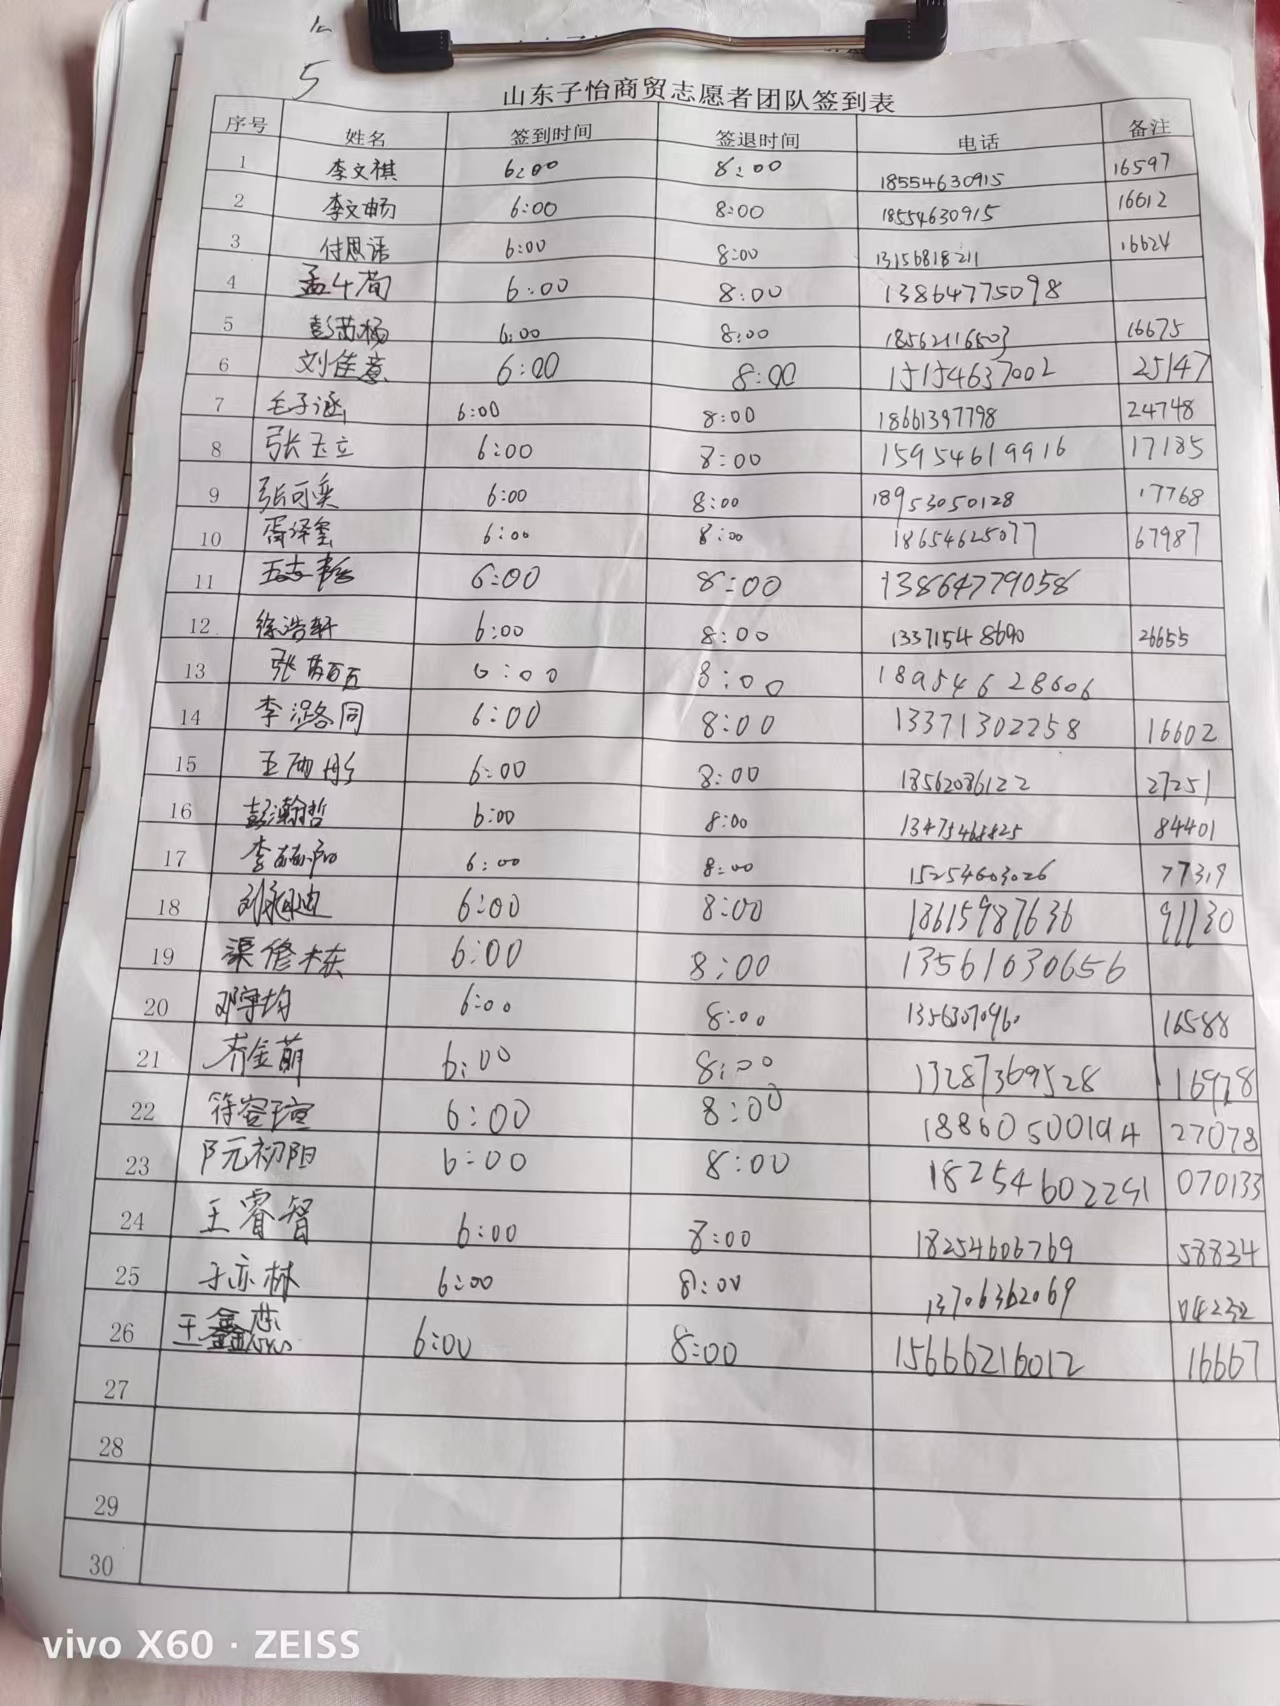 5
山东子怡商贸志愿者团队签到表
序号 姓名 签到时间 签退时间 电话 备注
1 李文祺 6:00 8:00 18554630915 16597
2 李文畅 6:00 8:00 18554630915 16612
3 付思语 6:00 8:00 13156818211 16624
4 孟 6:00 8:00 13864775098
5 彭苏杨 6:00 8:00 18562116503 16675
6 刘佳薏 6:00 8:00 15154637002 25147
7 毛子涵 6:00 8:00 18661397798 24748
8 张玉立 6:00 8:00 15954619916 17185
9 张可奕 6:00 8:00 18953050128 17768
10 6:00 8:00 18654625077 67987
11 6:00 8:00 13864779058
12 徐浩轩 6:00 8:00 13371548690 26655
13 张 6:00 8:00 18954628606
14 李潞同 6:00 8:00 13371302258 16602
15 王雨彤 6:00 8:00 18562086122 27251
16 彭瀚哲 6:00 8:00 84401
17 李 6:00 8:00 15254603026 77319
18 6:00 8:00 18615987636 91130
19 渠修栋 6:00 8:00 13561030656
20 邓宇均 6:00 8:00 16588
21 齐金萌 6:00 8:00 13287369528 16978
22 符容瑄 6:00 8:00 18860500194 27078
23 阮初阳 6:00 8:00 18254602291 070133
24 王睿智 6:00 8:00 18254606769 58834
25 于亦林 6:00 8:00 13706362069 04232
26 王鑫 6:00 8:00 15666216012 16667
27
28
29
30
vivo X60 · ZEISS